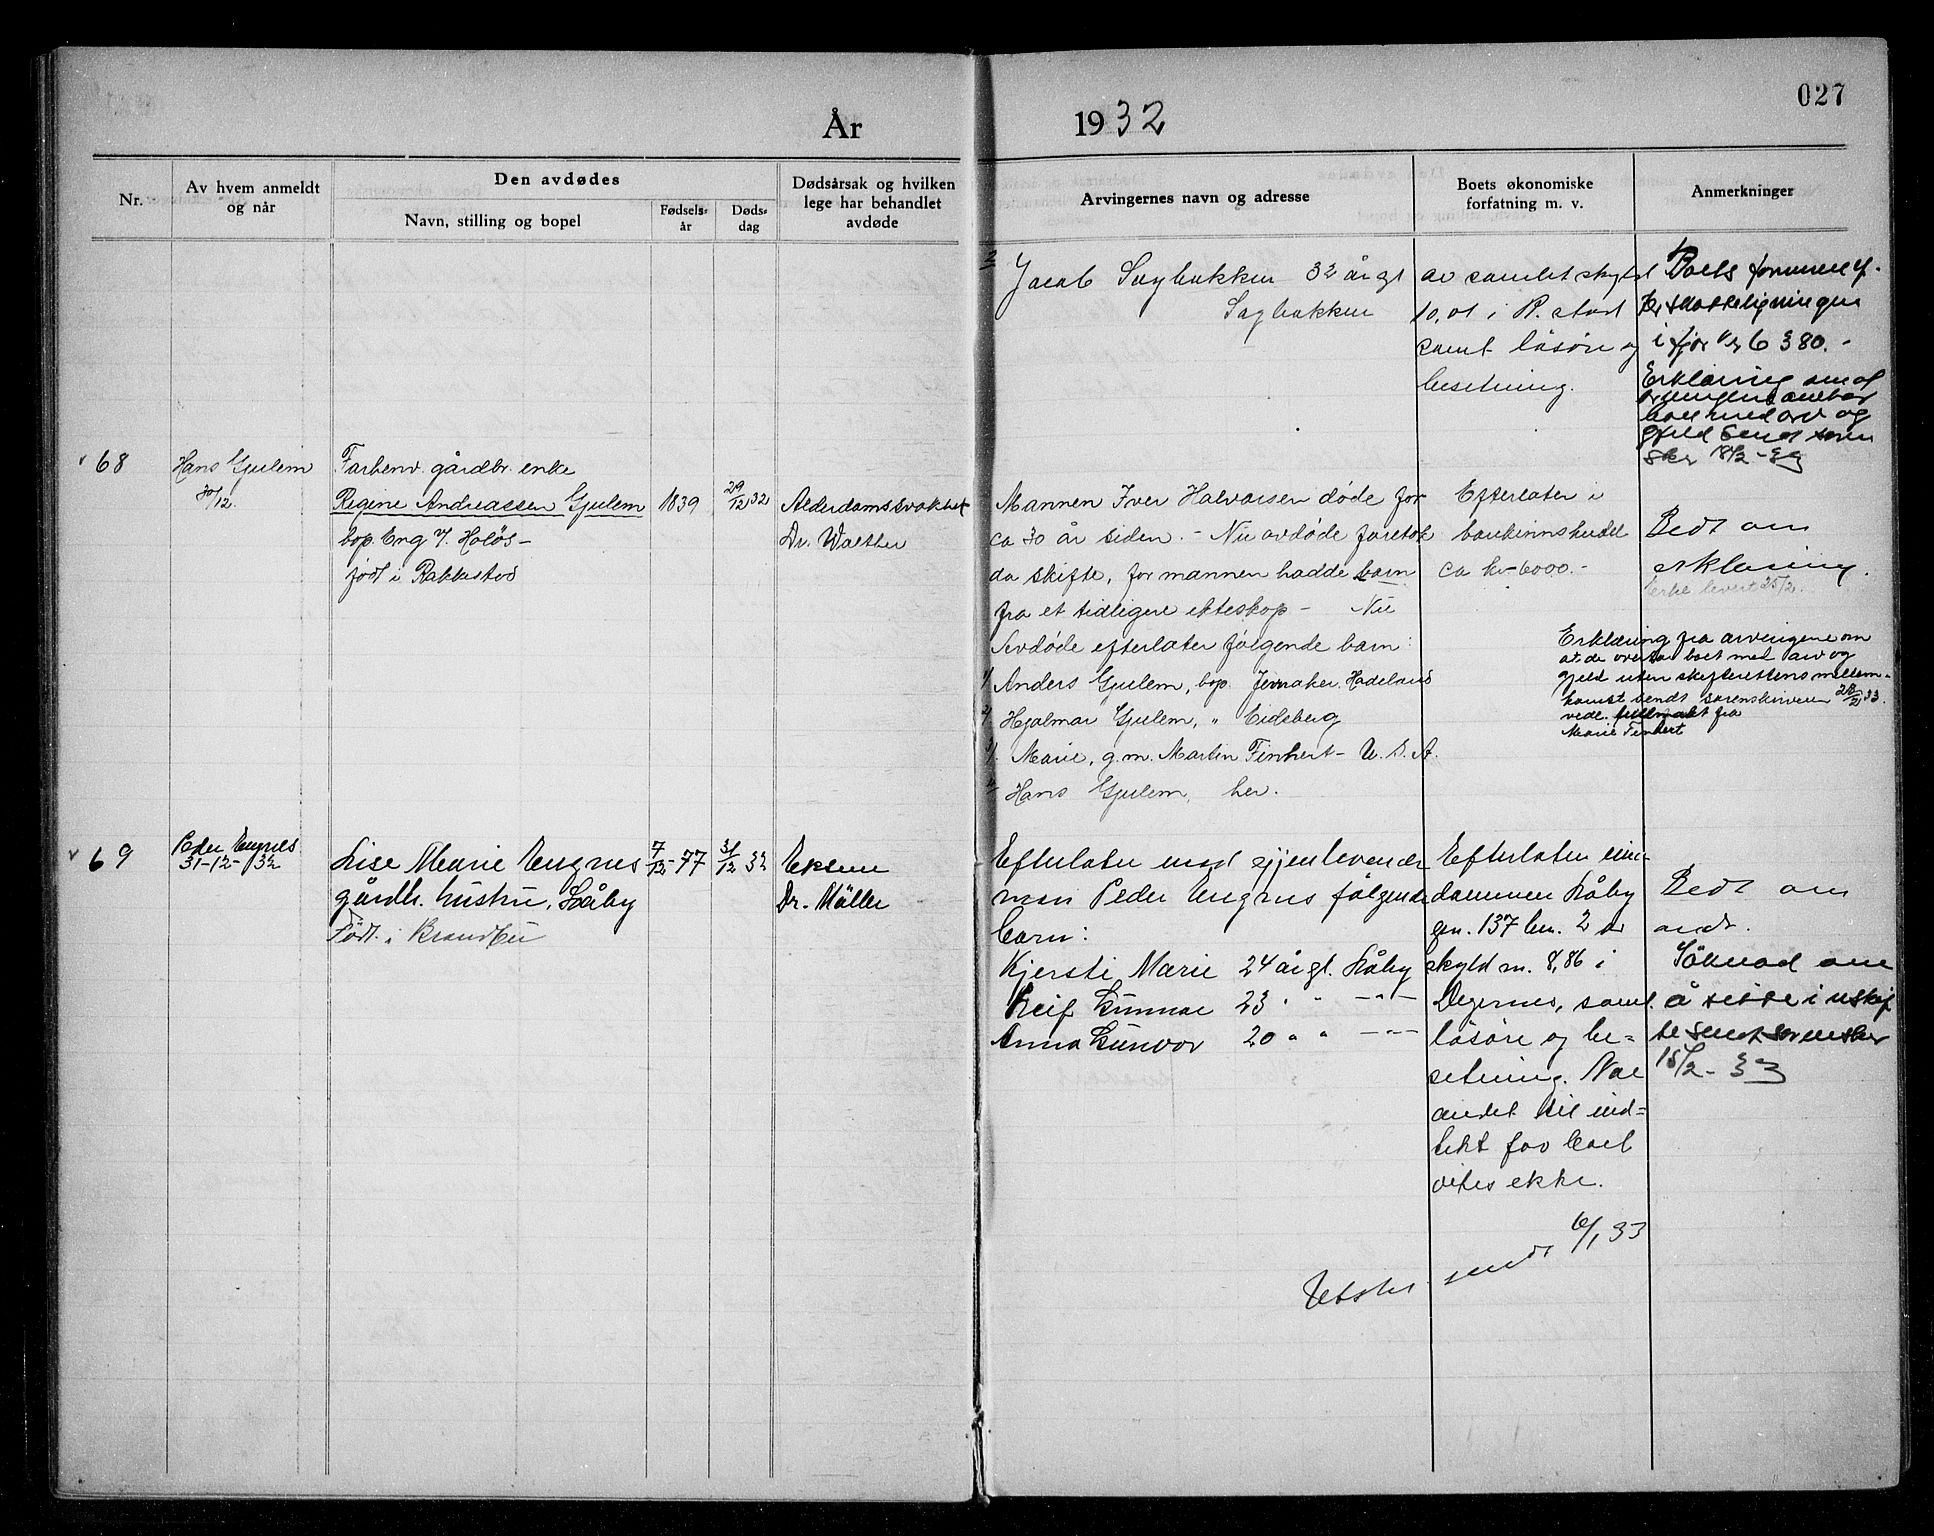 027
År 1932
Nr.
Av hvem anmeldt
og når
Den avdødes
Navn, stilling og bopel
Fødsels-
år
Døds-
dag
Dødsårsak og hvilken
lege har behandlet
avdøde
Arvingernes navn og adresse
Boets økonomiske
forfatning m. v.
Anmerkninger
2 Jacob Sagbakken 32 år gl
Sagbakken
av samlet skyld
10,01 i R. stad
samt løsøre og
besetning.
Boets formue ef.
skatteligningen
i fjor er 6 380.-
Erklæring om at
arvingene overtar
boet med arv og
gjeld sendt soren
skr 18/2-33
68
Hans Gjulem
30/12.
Forhenv. gårdbr. enke
Regine Andreassen Gjulem
bop. Eng i. Holøs-
født i Rakkestad
1839
29/12 32
Alderdomssvakhet
Dr. Walther
Mannen Iver Halvorsen døde for
ca 30 år siden. - Nu avdøde foretok
da skifte, for mannen hadde barn
fra et tidligere ekteskap - Nu
Avdøde efterlater følgende barn:
1/ Anders Gjulem, bop. Jevnaker. Hadeland
2/ Hjalmar Gjulem, " Eidsberg
3/. Marie, g.m. Martin Finhert - U. S. A.
4/ Hans Gjulem, her.
Efterlater i
bankinnskudd
ca kr-6000.-
Bedt om
erklæring.
Erkl levert 25/2.
Erklæring fra arvingene om
at de overtar boet med arv og
gjeld uten skifterettens mellem-
komst sendt sorenskriveren 28/2 33.
vedl. fullmakt fra
Marie Finhert
69
Peder Engnes
31-12-32
Lise Marie Engnes
gårdb. hustru, Kåby
Født i Brandbu
7/12-77
31/12 32
Eksem
Dr. Møller
Efterlater med gjenlevende
man Peder Engnes følgende
barn:
Kjersti Marie 24 år gl. Kåby
Leif Gunnar 23 " " -"-
Anna Gunvor 20 " " -"-
Efterlater eien-
dommen Kåby
gn. 137 bn. 2 av
skyld m. 8,86 i
Degernes, samt
løsøre og be-
setning. Noe
andet til ind-
tekt for boet
vites ikke.
Bedt om
andr.
Søknad om
å sitte i uskif
te sendt sorenskr
15/2-33
Utskr sendt 6/1 33